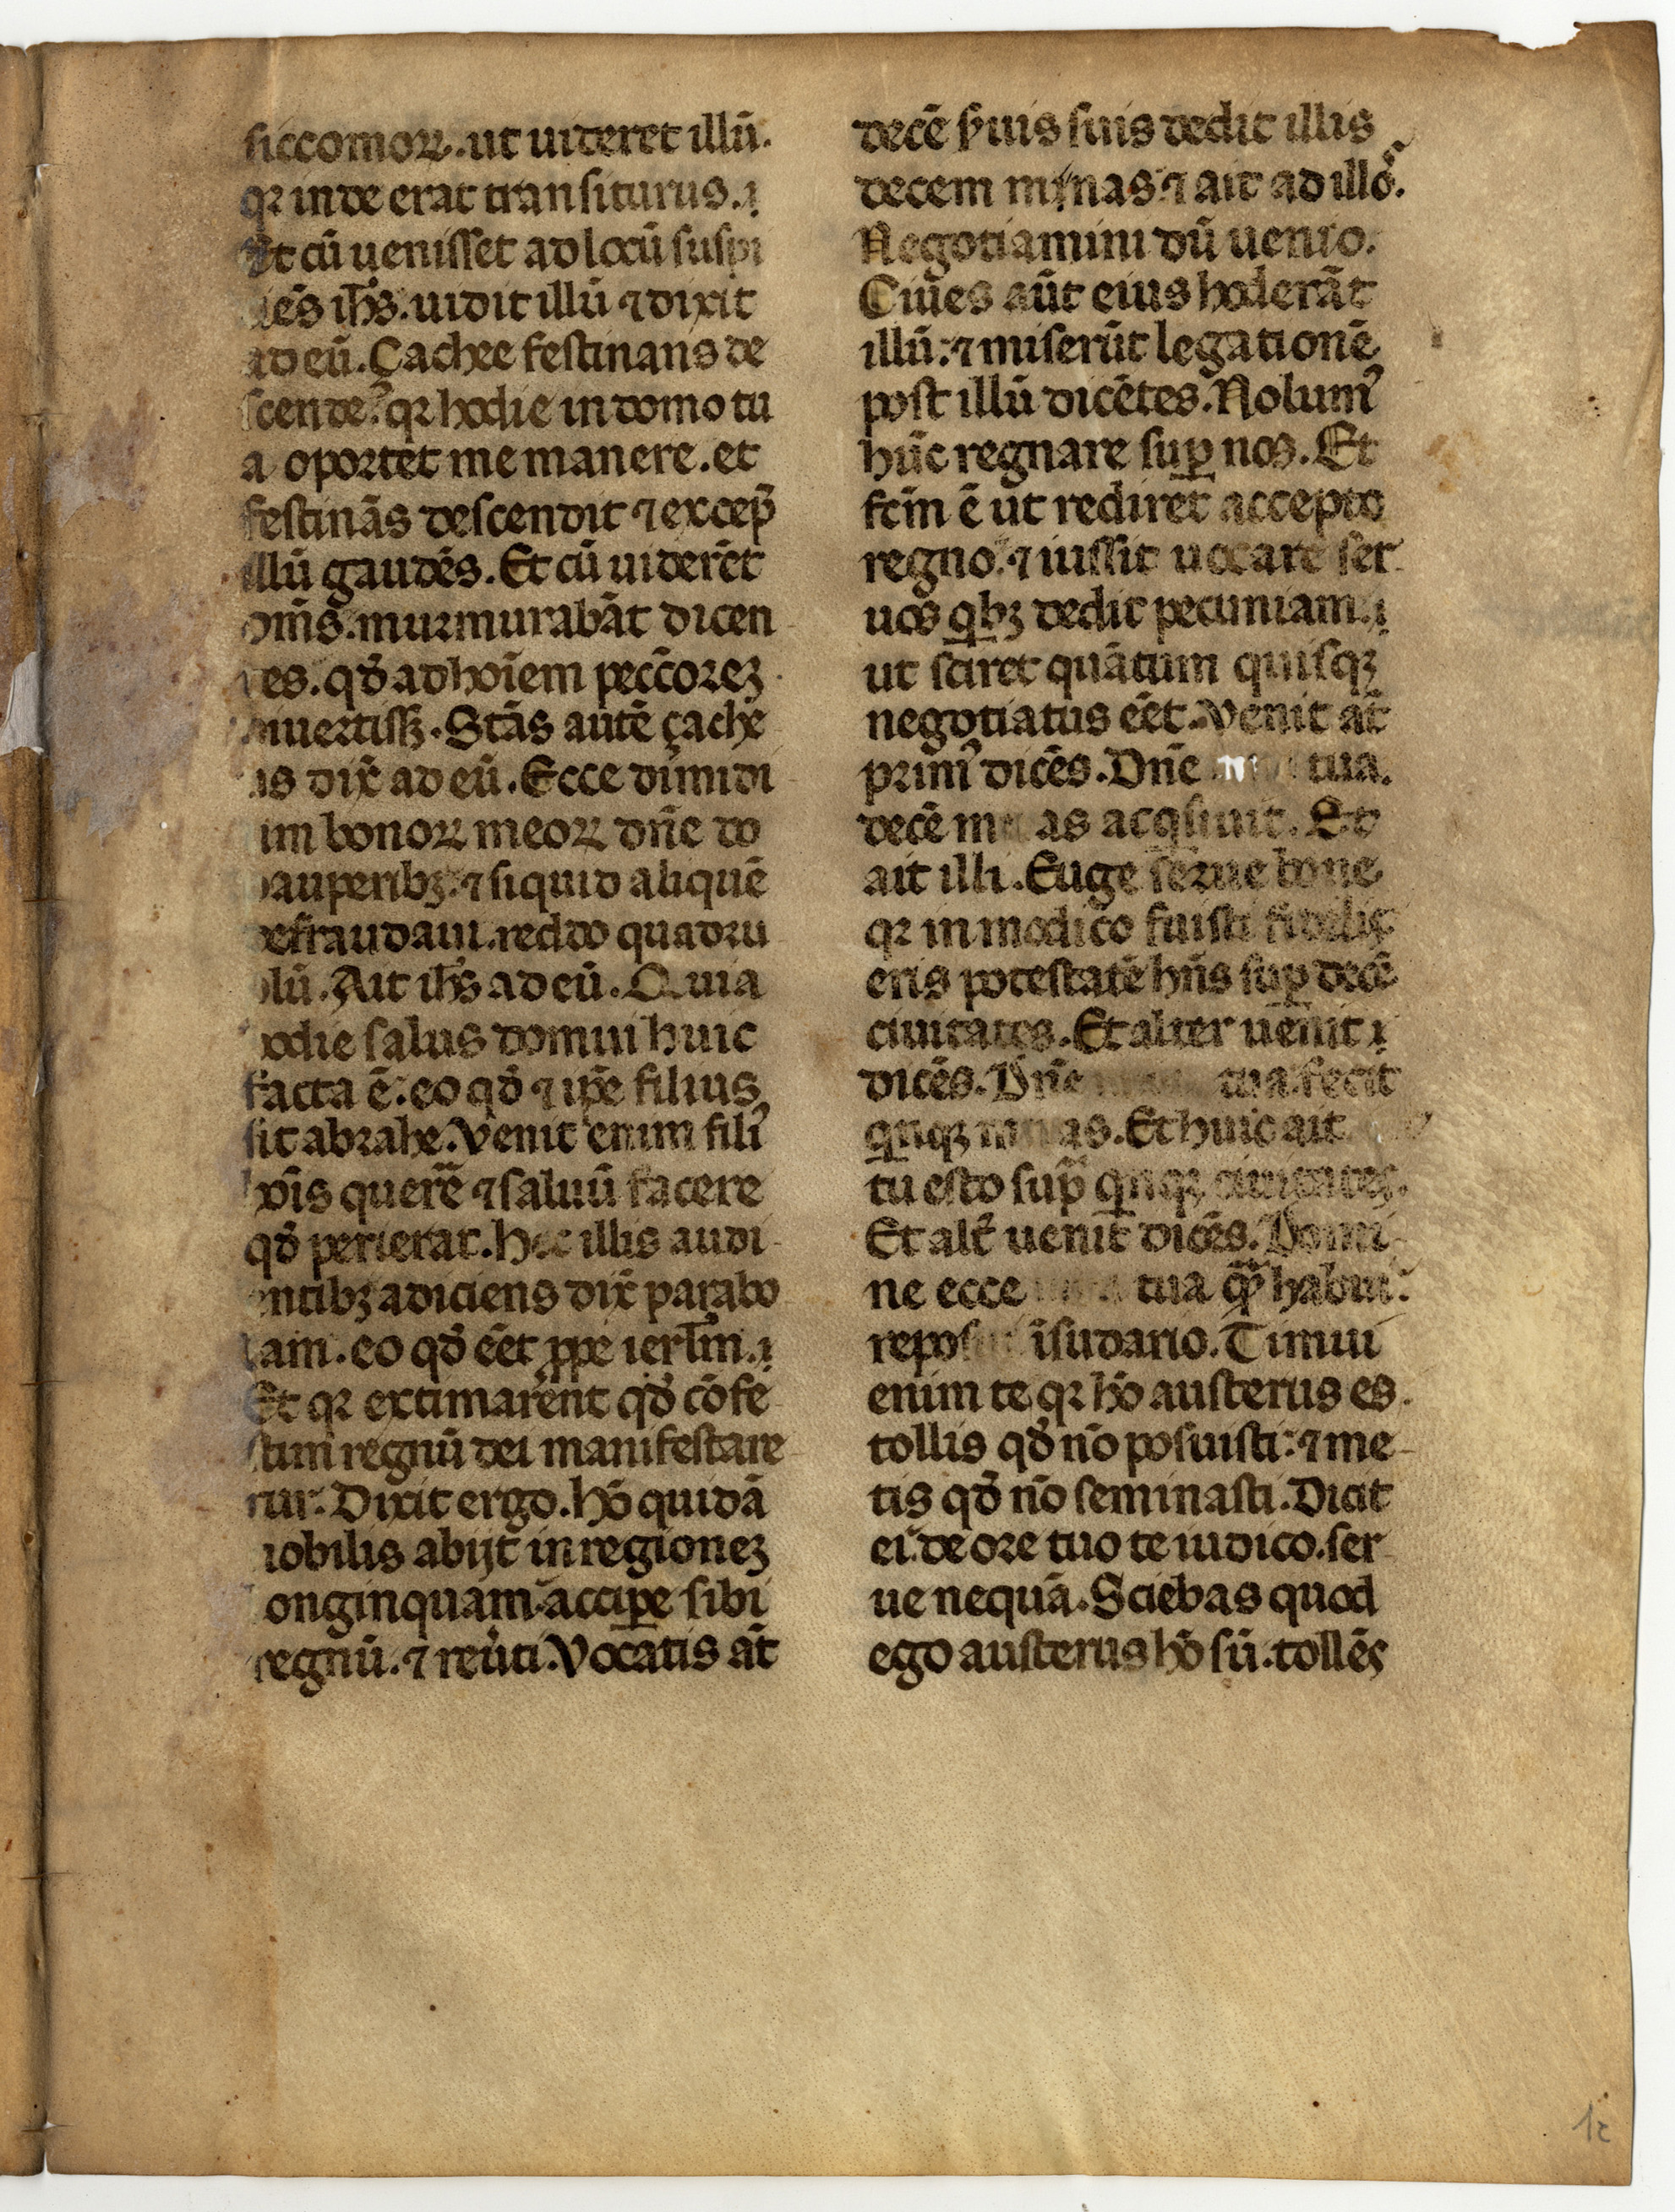 siccomoꝝ. ut uideret illū.
qꝛ inde erat transiturus.
Et cū uenisset ad locū suspi
iēs ih̄s. uidit illū ⁊ dixit
ad eū. Çachee festinans de
scende. qꝛ hodie in domo tu
a oportet me manere. et
festinās descendit ⁊ excep̄
illū gaudēs. Et cū uiderēt
om̄s. murmurabāt dicen
es. qđ ad hoīem peccōrēꝫ
iuertissꝫ. Stās autē çache
us dix̄ ad eū. Ecce dimidi
um bonoꝝ meoꝝ dn̄e do
pauperibꝫ. ⁊ siquid aliquē
defraudaui. reddo quadru
lū. Ait ih̄s ad eū. Quia
odie salus domui huic
facta ē. eo qđ ⁊ ip̄e filius
sit abrahe. Venit enim fili᾽
hoīs querē ⁊ saluū facere
qđ perierat. Hec illis audi
entibꝫ adiciens dix̄ parabo
lam. eo qđ eēt ꝓpe ierl̄m.
Et qꝛ extimarent qđ cōfe
stim regnū dei manifestare
tur. Dixit ergo. hō quidā
nobilis abijt in regioneꝫ
onginquam. acciꝑe sibi
regnū. ⁊ reūti. Vocatis āt
decē s̄uis suis dedit illis
decem mnas. ⁊ ait ad illos.
Negotiamini dū uenio.
Ciues aūt eius hoderāt
illū. ⁊ miserūt legationē
post illū dicētes. Nolum᾽
hūc regnare suꝑ nos. Et
fcm̄ ē ut rediret accepto
regno. ⁊ iussit uocare ser
uos qbꝫ dedit pecuniam.
ut sciret quātum quisqꝫ
negotiatus eēt. Venit āt
prim᾽ dicēs. Dn̄e tua.
decē m as acqsiuit. Et
ait illi. Euge serue bone
qꝛ in modico fuisti fidelis
eris potestatē hn̄s suꝑ decē
ciuitates. Et alter uenit
dicēs. Dn̄e tua fecit
qnqꝫ m as. Et huic ait
tu esto sup̄ qnqꝫ ciuitates.
Et alt̄ uenit dicēs. Domi
ne ecce tua qm̄ habui.
repos īsudario. Timui
enim te qꝛ hō austerus es.
tollis qđ nō posuisti. ⁊ me
tis qđ nō seminasti. Dicit
ei. de ore tuo te iudico. ser
ue nequā. Sciebas quod
ego austerus hō sū. tollēs
12